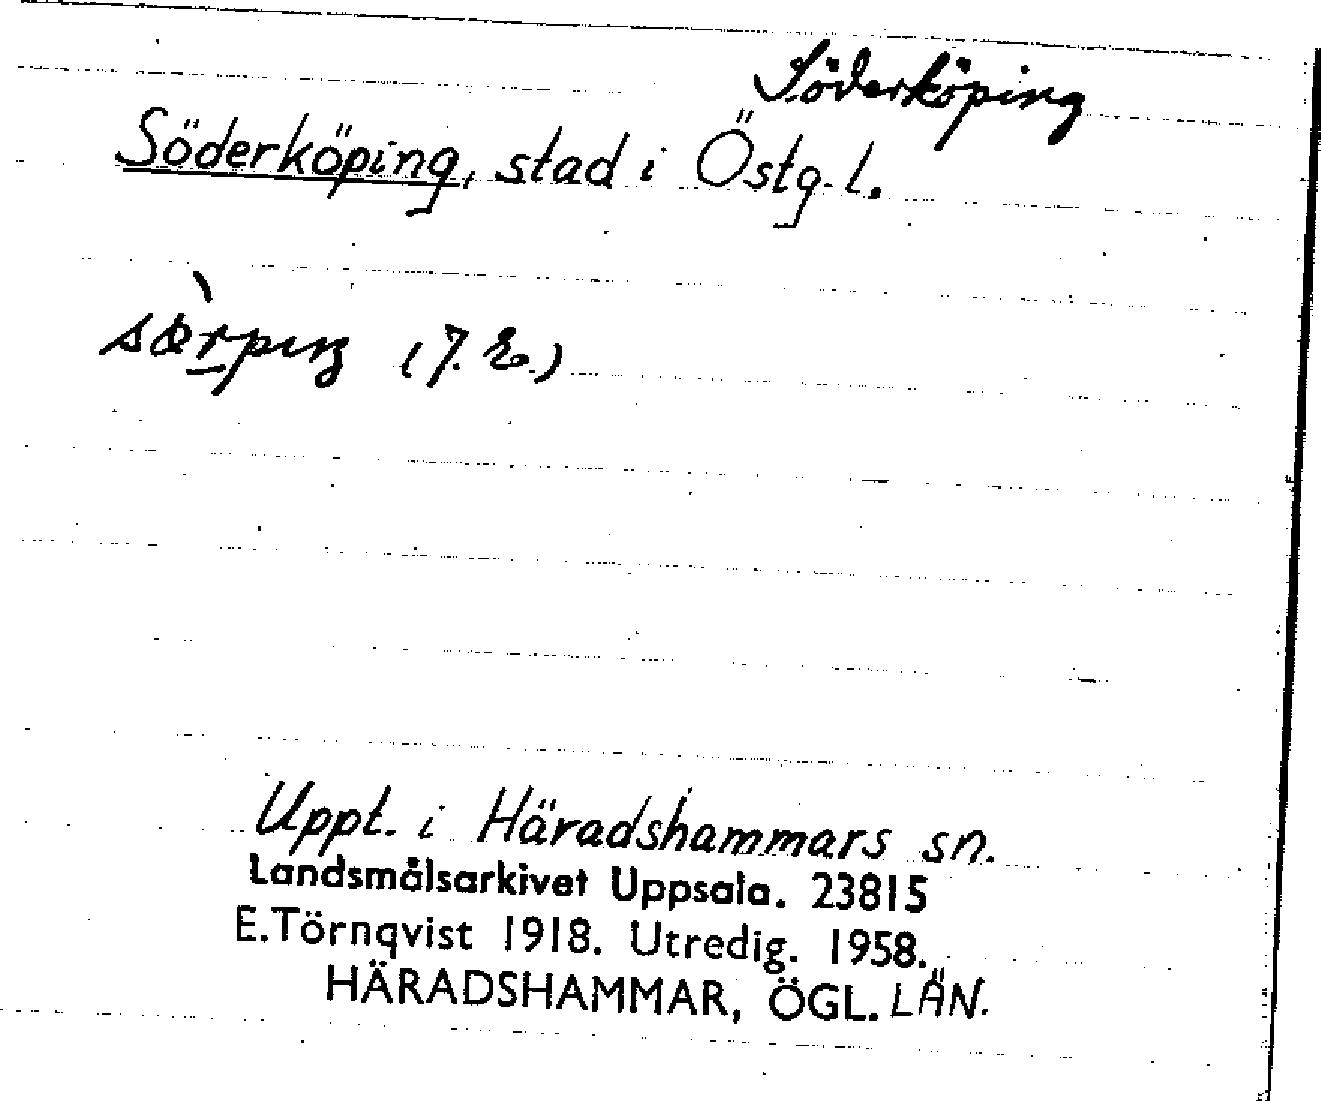 Söderköping
Söderköping, stad i Östg. l.
Uppt. i Häradshammars sn.
Landsmålsarkivet Uppsala. 23815
E.Törnqvist 1918. Utredig. 1958.
HÄRADSHAMMAR, ÖGL. LÄN.